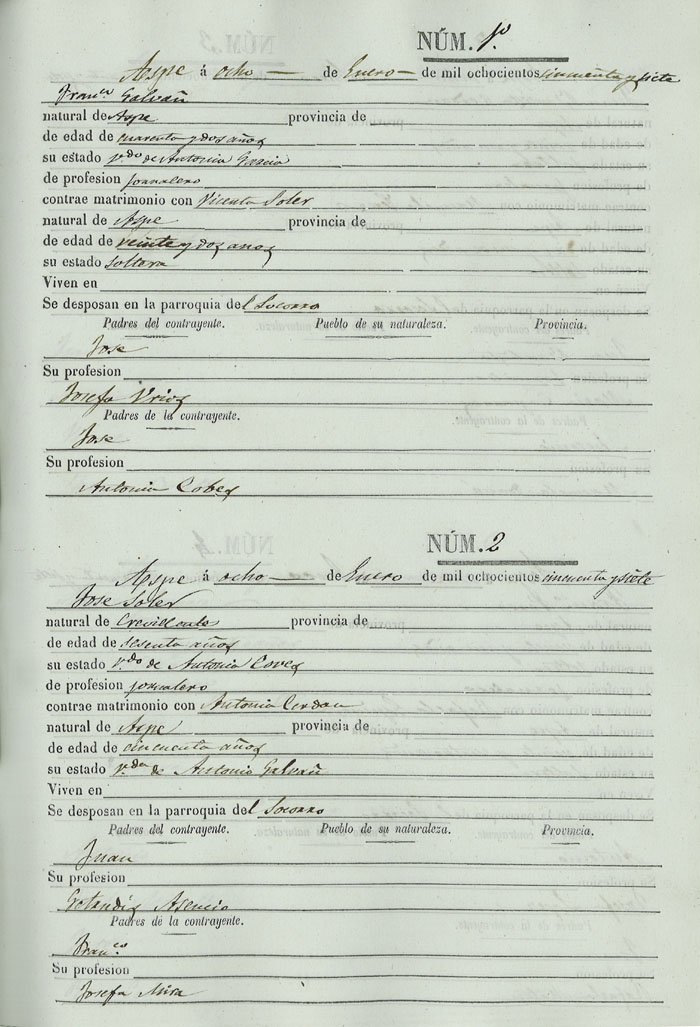 NÚM. 1º
Aspe á ocho de Enero de mil ochocientos cincuenta y siete
Fran.co Galvañ
natural de Aspe provincia de
de edad de cuarenta y dos años
su estado v.do de Antonia Garcia
de profesion jornalero
contrae matrimonio con Vicenta Soler
natural de Aspe provincia de
de edad de veinte y dos años
su estado soltera
Viven en
Se desposan en la parroquia del Socorro
Padres del contrayente. Pueblo de su naturaleza. Provincia.
Jose
Su profesion
Josefa Urios
Padres de la contrayente.
Jose
Su profesion
Antonia Cobes
NÚM. 2
Aspe á ocho de Enero de mil ochocientos cincuenta y siete
Jose Soler
natural de Crevillente provincia de
de edad de sesenta años
su estado v.do de Antonia Coves
de profesion jornalero
contrae matrimonio con Antonia Cerdan
natural de Aspe provincia de
de edad de cincuenta años
su estado v.da de Antonio Galvañ
Viven en
Se desposan en la parroquia del Socorro
Padres del contrayente. Pueblo de su naturaleza. Provincia.
Juan
Su profesion
Asencio
Padres de la contrayente.
Fran.co
Su profesion
Josefa Mira